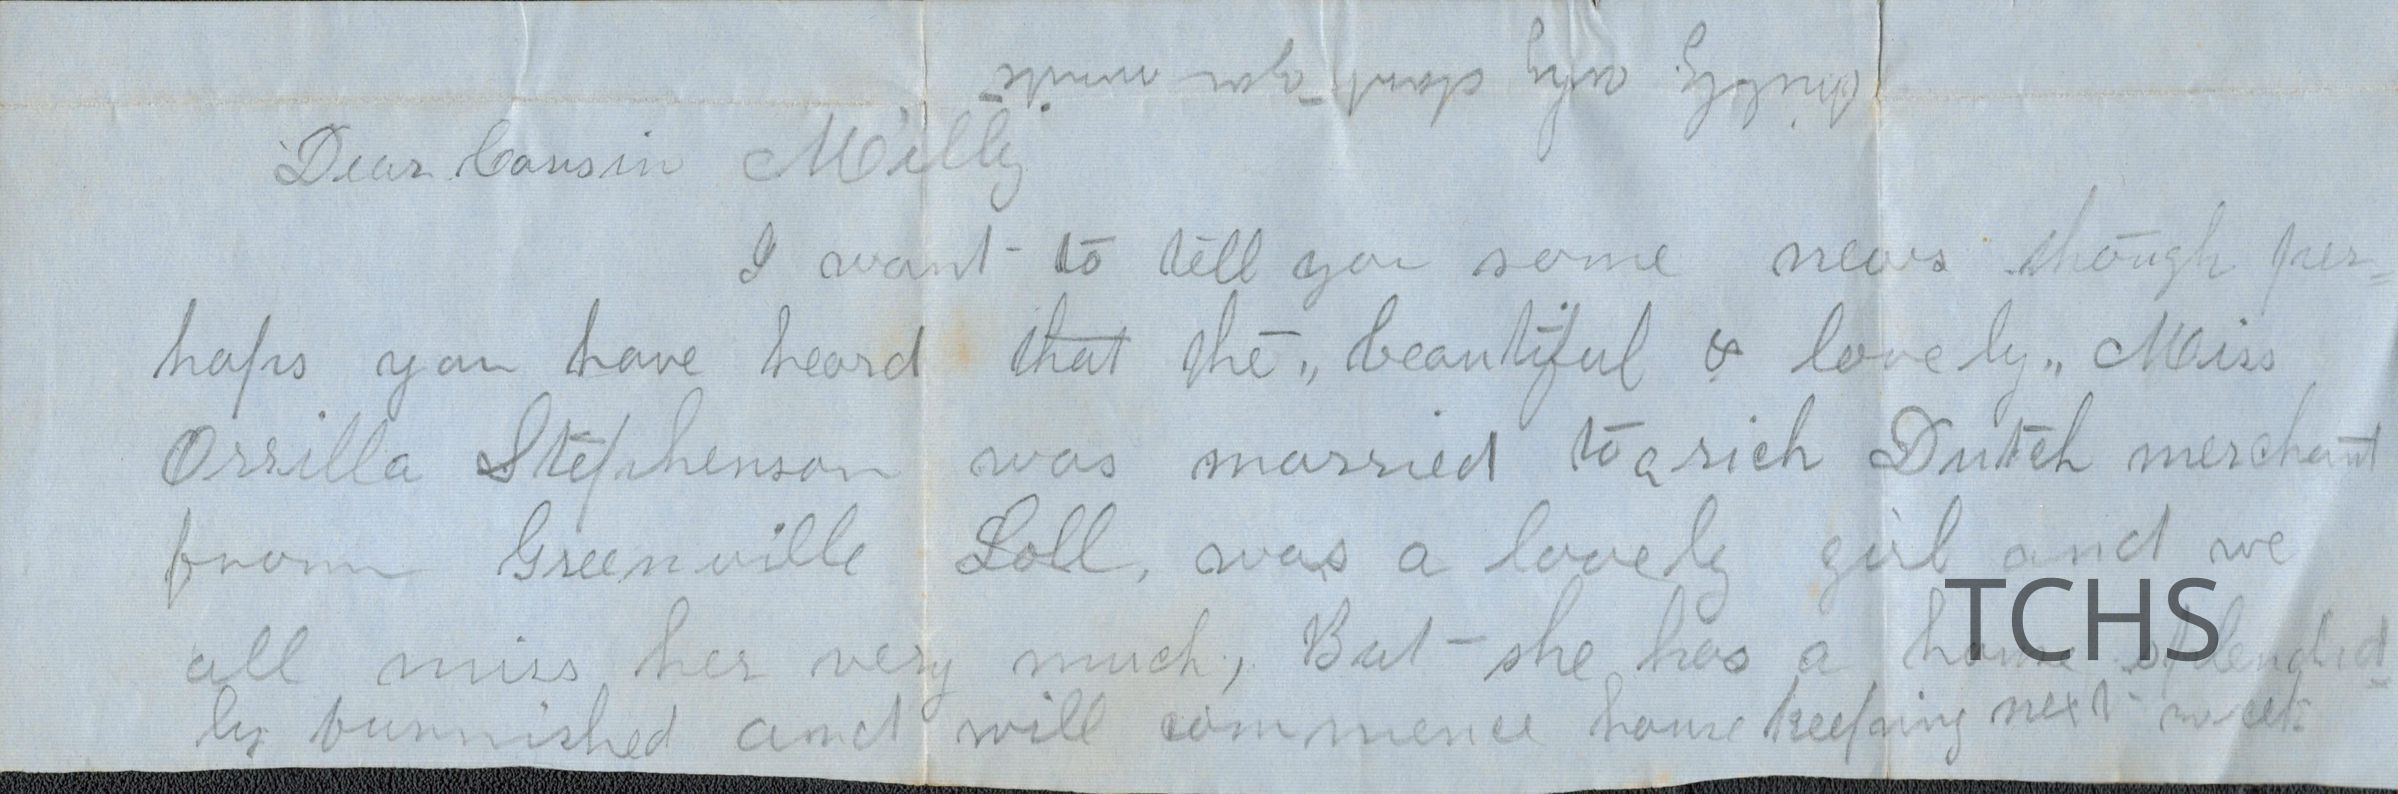 quickly. why dont you write
Dear Cousin Milly
I want to tell you some news though per=
haps you have heard that the „beautiful & lovely„ Miss
Orrilla Stephenson was married to a rich Dutch merchant
from Greenville Loll, was a lovely girl and we
all miss her very much, But she has a home splendid=
ly furnished and will commence house keeping next week
TCHS